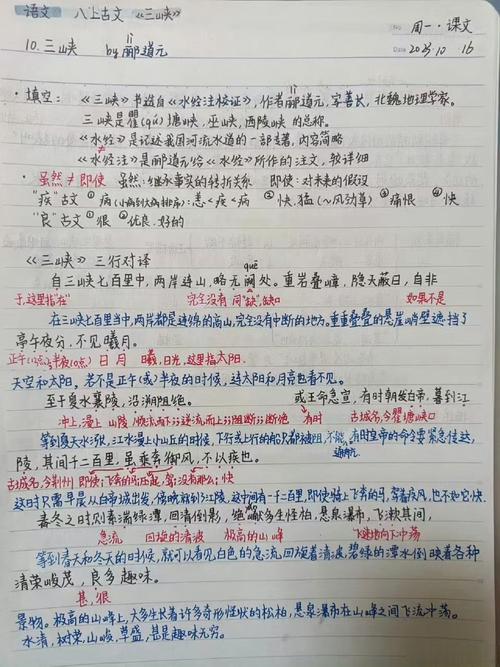 语文 八上古文《三峡》
No. 周一·课文
10.三峡 by郦(lì)道元 Date 2023.10.16
·填空:《三峡》书选自《水经注校证》,作者郦(lì)道元,字善长,北魏地理学家。
三峡是瞿(qú)塘峡,巫峡,西陵峡的总称。
《水经》是记述我国河流水道的一部专著,内容简略
≠
《水经注》是郦道元给《水经》所作的注文,较详细
·虽然≠即使 虽然:继承事实的转折关系 即使:对未来的假设
"疾"古文 ①病(小病到大病排序):恙<疾<病 ②快,猛(~风劲草) ③痛恨 ④快
"良"古文 ①很 ②优良.好的
《三峡》三行对译
自三峡七百里中,两岸连山,略无阙(quē)处。重岩叠嶂,隐天蔽日,自非
于,这里指"在" 完全没有 同"缺",缺口 如果不是
在三峡七百里当中,两岸都是连绵的高山,完全没有中断的地方。重重叠叠的悬崖峭壁遮挡了
亭午夜分,不见曦月。
正午(12点) 半夜(0点) 日 月 曦,日光,这里指太阳.
天空和太阳。若不是正午(或)半夜的时候,连太阳和月亮也看不见。
至于夏水襄陵,沿溯阻绝. 或王命急宣,有时朝发白帝,暮到江
冲上,漫上 山陵 顺流而下 逆流而上 阻断 断绝 有时 古城名,今瞿塘峡口
等到夏天水涨,江水漫上小山丘的时候,下行或上行的船只都被阻,不能通航。有时皇帝的命令要紧急传达,
陵,其间千二百里,虽乘奔御风,不以疾也。
古城名,今荆州 即使 飞奔的马 驾 没有那么 快
这时只需早晨从白帝城出发,傍晚就到江陵,这中间有一千二百里,即使骑上飞奔的马,驾着疾风,也不如它快.
春冬之时则素湍绿潭,回清倒影,绝巘多生怪柏,悬泉瀑布,飞漱其间,
急流 回旋的清波 极高的山峰 飞速地向下冲荡
等到春天和冬天的时候,就可以看见白色的急流,回旋着清波,碧绿的潭水倒映着各种
清荣峻茂,良多趣味。
甚,很
景物。极高的山峰上,大多生长着许多奇形怪状的松柏,悬泉瀑布在山峰之间飞流冲荡。
水清,树荣,山峻,草盛,甚是趣味无穷。